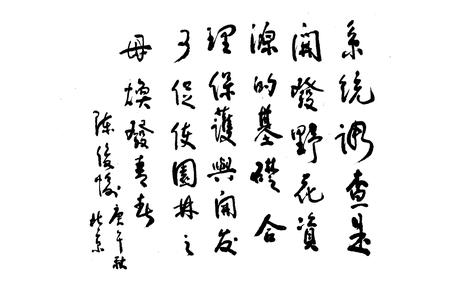 系統調查是
開發野花資
源的基礎合
理保護與開发
可促使園林之
母煥發青春
陳俊愉 庚午秋
北京